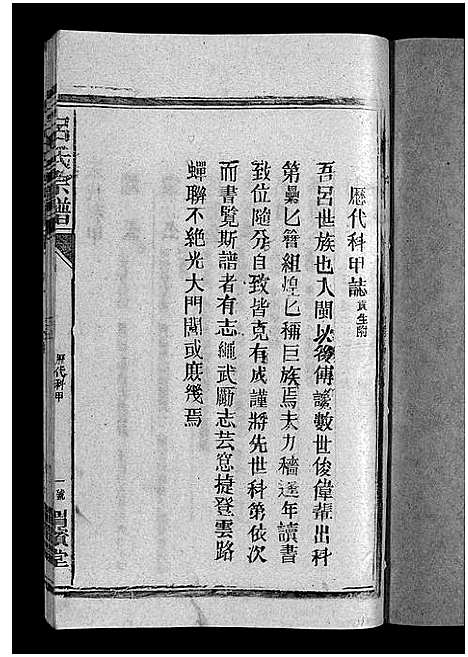 歷代科甲誌貢生附
吾呂世族也入閩以後傳讓數世俊偉輩出科
第疊匕簪組煌匕稱巨族焉夫力穡逢年讀書
致位隨分自致皆克有成謹將先世科第依次
而書覽斯譜者有志繩武勵志芸窓捷登雲路
蟬聯不絕光大門閭或庶幾焉
呂氏宗譜
歷代科甲
一號
渭濱堂